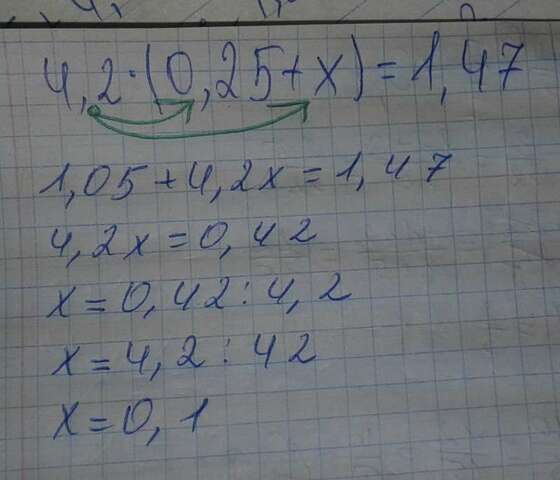 4,2·(0,25+x)=1,47
1,05+4,2x=1,47
4,2x=0,42
x=0,42:4,2
x=4,2:42
x=0,1